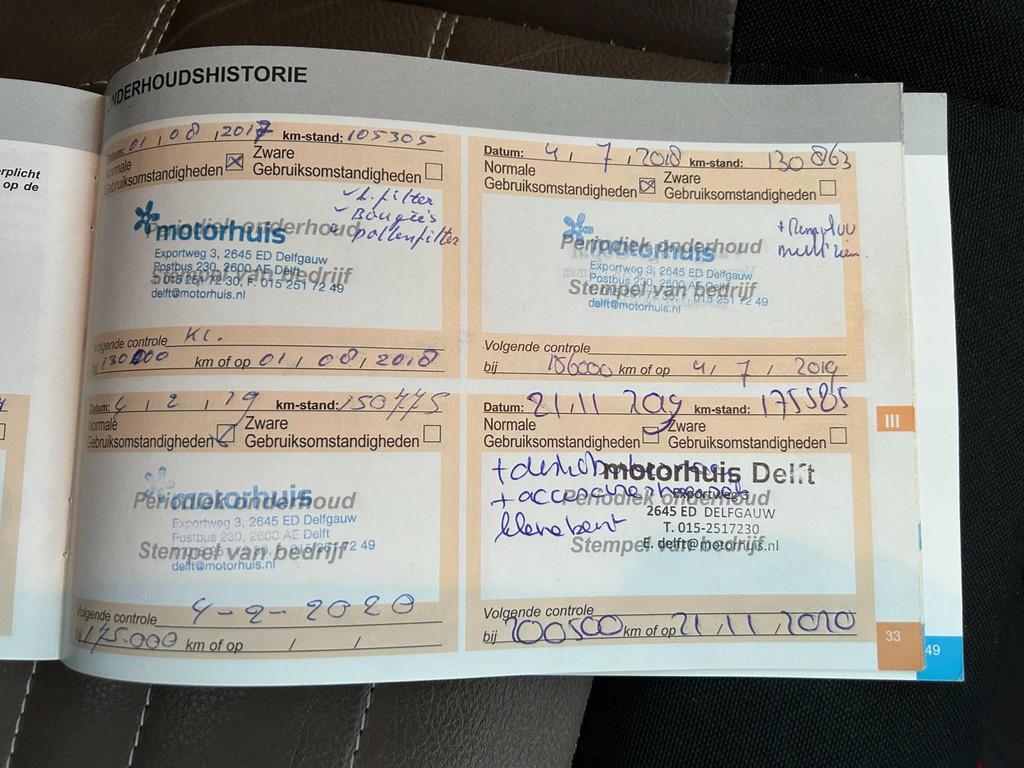 NDERHOUDSHISTORIE
rplicht
op de
Datum: 01 / 08 / 2017 km-stand: 105305
Normale
Gebruiksomstandigheden
Zware
Gebruiksomstandigheden
L. filter
Bougies
pollenfilter
Periodiek onderhoud
motorhuis
Exportweg 3, 2645 ED Delfgauw
Postbus 230, 2600 AE Delft
Stempel van bedrijf
T. 015 251 72 30, F. 015 251 72 49
delft@motorhuis.nl
Volgende controle KL.
bij 130000 km of op 01 / 08 / 2018
Datum: 4 / 7 / 2018 km-stand: 130863
Normale
Gebruiksomstandigheden
Zware
Gebruiksomstandigheden
Periodiek onderhoud
motorhuis
Exportweg 3, 2645 ED Delfgauw
Postbus 230, 2600 AE Delft
Stempel van bedrijf
015 251 72 49
delft@motorhuis.nl
Volgende controle
bij 156000 km of op 4 / 7 / 2019
Datum: 4 / 2 / 19 km-stand: 150775
Normale
Gebruiksomstandigheden
Zware
Gebruiksomstandigheden
Periodiek onderhoud
motorhuis
Exportweg 3, 2645 ED Delfgauw
Postbus 230, 2600 AE Delft
Stempel van bedrijf
72 49
delft@motorhuis.nl
Volgende controle 4-2-2020
bij 175.000 km of op / /
Datum: 21 / 11 2019 km-stand: 175585
Normale
Gebruiksomstandigheden
Zware
Gebruiksomstandigheden
motorhuis Delft
Periodiek onderhoud
Exportweg 3
2645 ED DELFGAUW
T. 015-2517230
Stempel van bedrijf
E. delft@motorhuis.nl
Volgende controle
bij 200500 km of op 21 / 11 / 2020
III
33
49